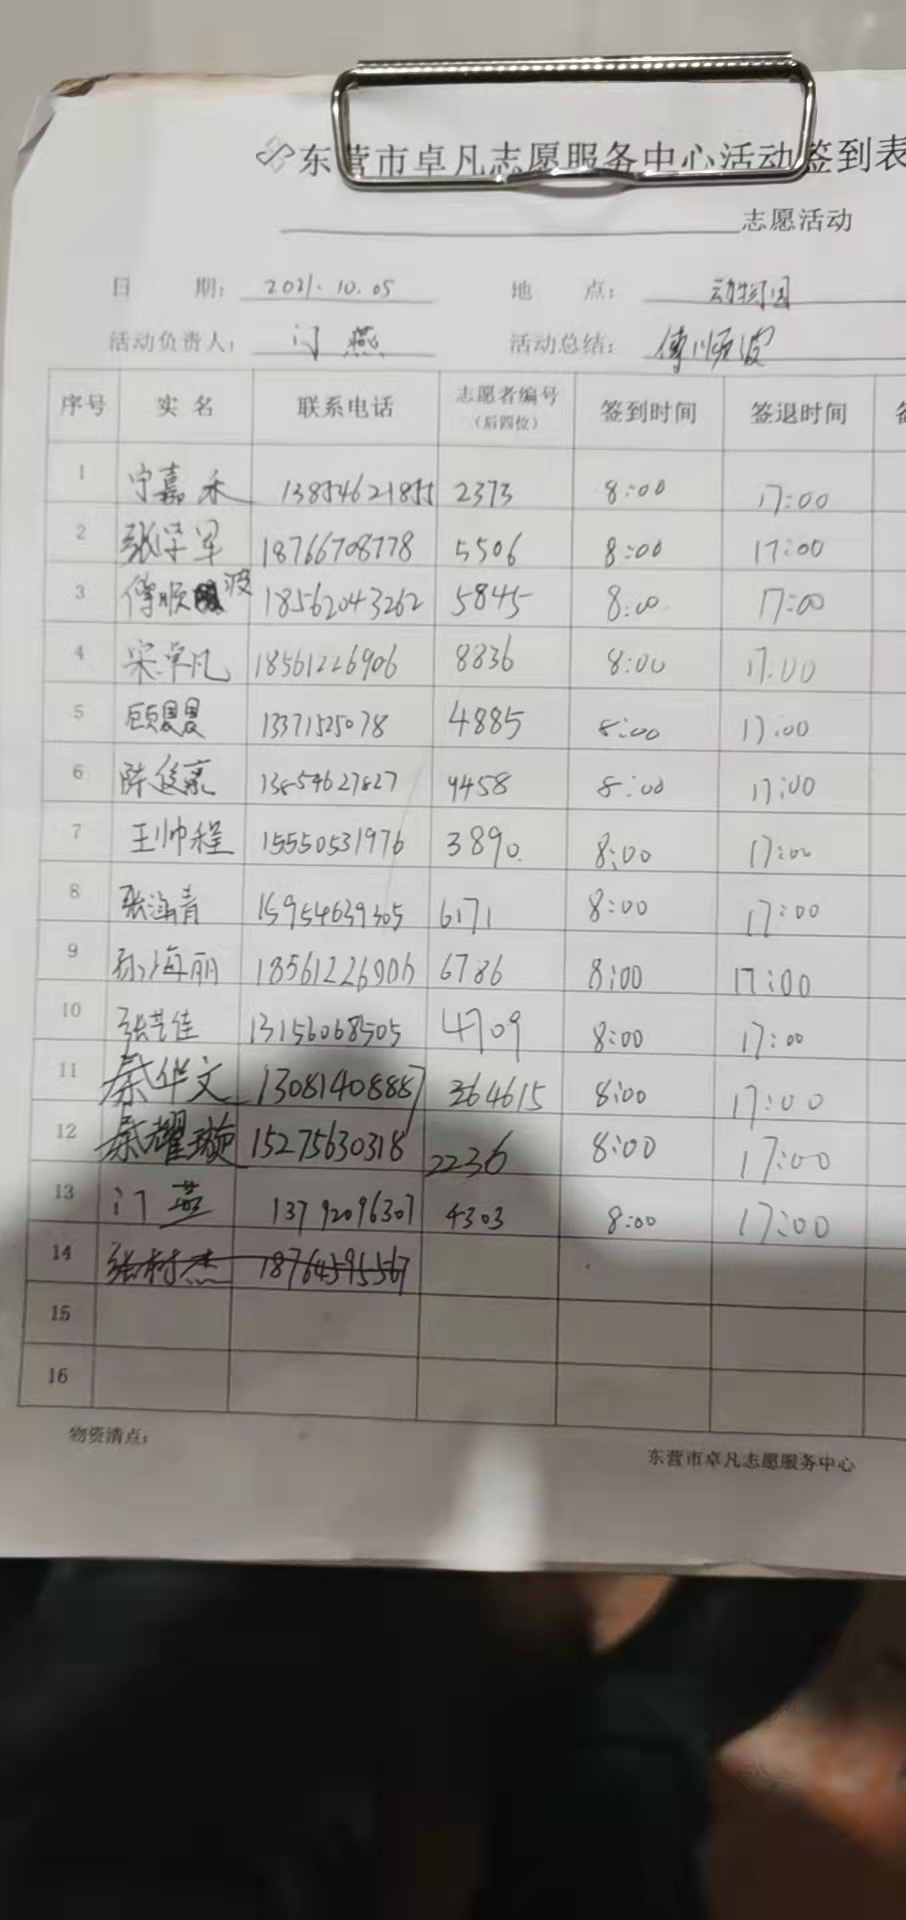 东营市卓凡志愿服务中心活动签到表
志愿活动
日 期: 2021.10.05 地 点: 动物园
活动负责人: 门燕 活动总结: 傅顺波
序号 实名 联系电话 志愿者编号(后四位) 签到时间 签退时间
1 宁嘉禾 13854621855 2373 8:00 17:00
2 张学军 18766708778 5506 8:00 17:00
3 傅顺波 18562043262 5845 8:00 17:00
4 宋卓凡 18561226906 8836 8:00 17:00
5 顾晏晏 13371525078 4885 8:00 17:00
6 陈俊豪 13854627827 9458 8:00 17:00
7 王帅程 15550531976 3890 8:00 17:00
8 张涵青 15954639305 6171 8:00 17:00
9 孙海丽 18561226906 6786 8:00 17:00
10 张艺佳 13156068505 4709 8:00 17:00
11 秦华文 13081408887 364615 8:00 17:00
12 秦耀璇 15275630318 2236 8:00 17:00
13 门燕 13792096307 4303 8:00 17:00
14 张树杰 18764595567
15
16
物资清点:
东营市卓凡志愿服务中心